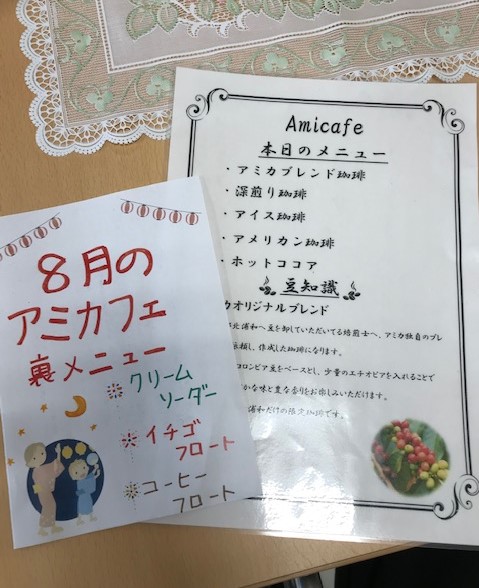 Amicafe
本日のメニュー
・アミカブレンド珈琲
・深煎り珈琲
・アイス珈琲
・アメリカン珈琲
・ホットココア
豆知識
カオリジナルブレンド
北浦和へ豆を卸していただいてる焙煎士へ、アミカ独自のブレ
頼し、作成した珈琲になります。
コロンビア豆をベースとし、少量のエチオピアを入れることで
かな味と豊な香りをお楽しみいただけます。
浦和だけの限定珈琲です。
8月の
アミカフェ
裏メニュー
クリーム
ソーダー
イチゴ
フロート
コーヒー
フロート